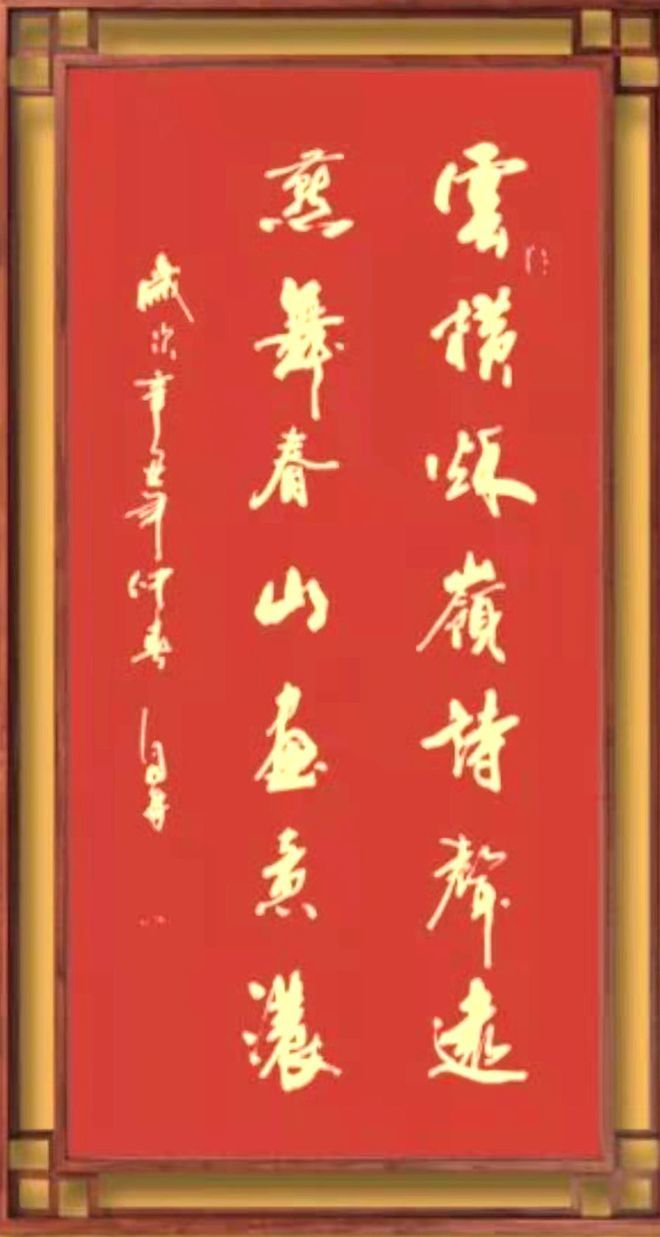 雲橫秋嶺詩聲遠
燕舞春山畫意濃
歲次辛丑年仲春